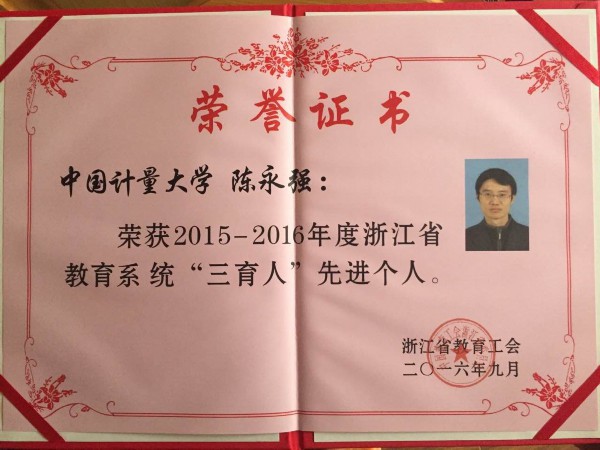 荣誉证书
中国计量大学 陈永强：
荣获2015-2016年度浙江省
教育系统“三育人”先进个人。
浙江省教育工会
二〇一六年九月